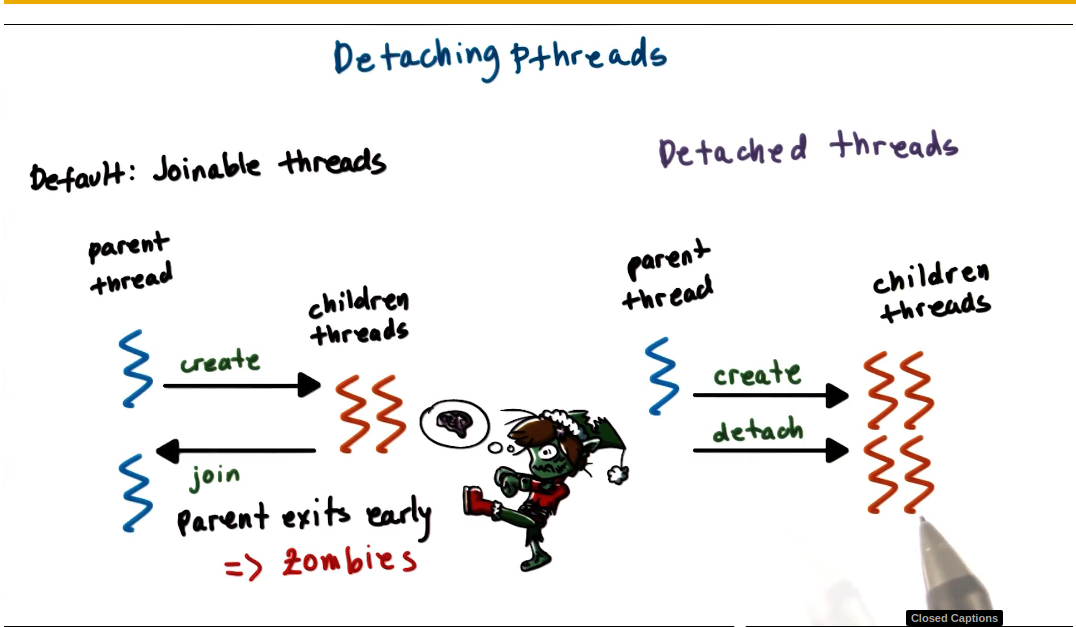 Detaching pthreads
Default: Joinable threads
parent
thread
children
threads
create
join
Parent exits early
=> zombies
Detached threads
parent
thread
children
threads
create
detach
Closed Captions